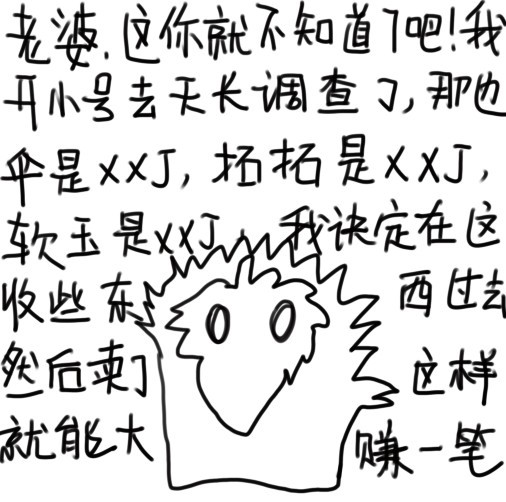 老婆,这你就不知道了吧!我
开小号去天长调查了,那边
伞是XXJ,拓拓是XXJ,
软玉是XXJ,我决定在这
收些东西过去
然后卖了这样
就能大赚一笔